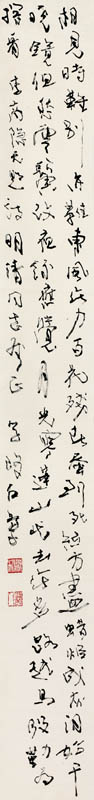 相見時難別亦難東風無力百花殘春蠶到死絲方盡蠟炬成灰淚始干
曉鏡但愁雲鬢改夜吟應覺月光寒蓬山此去無多路青鳥殷勤為
探看 李商隱無題詩 明清同志正